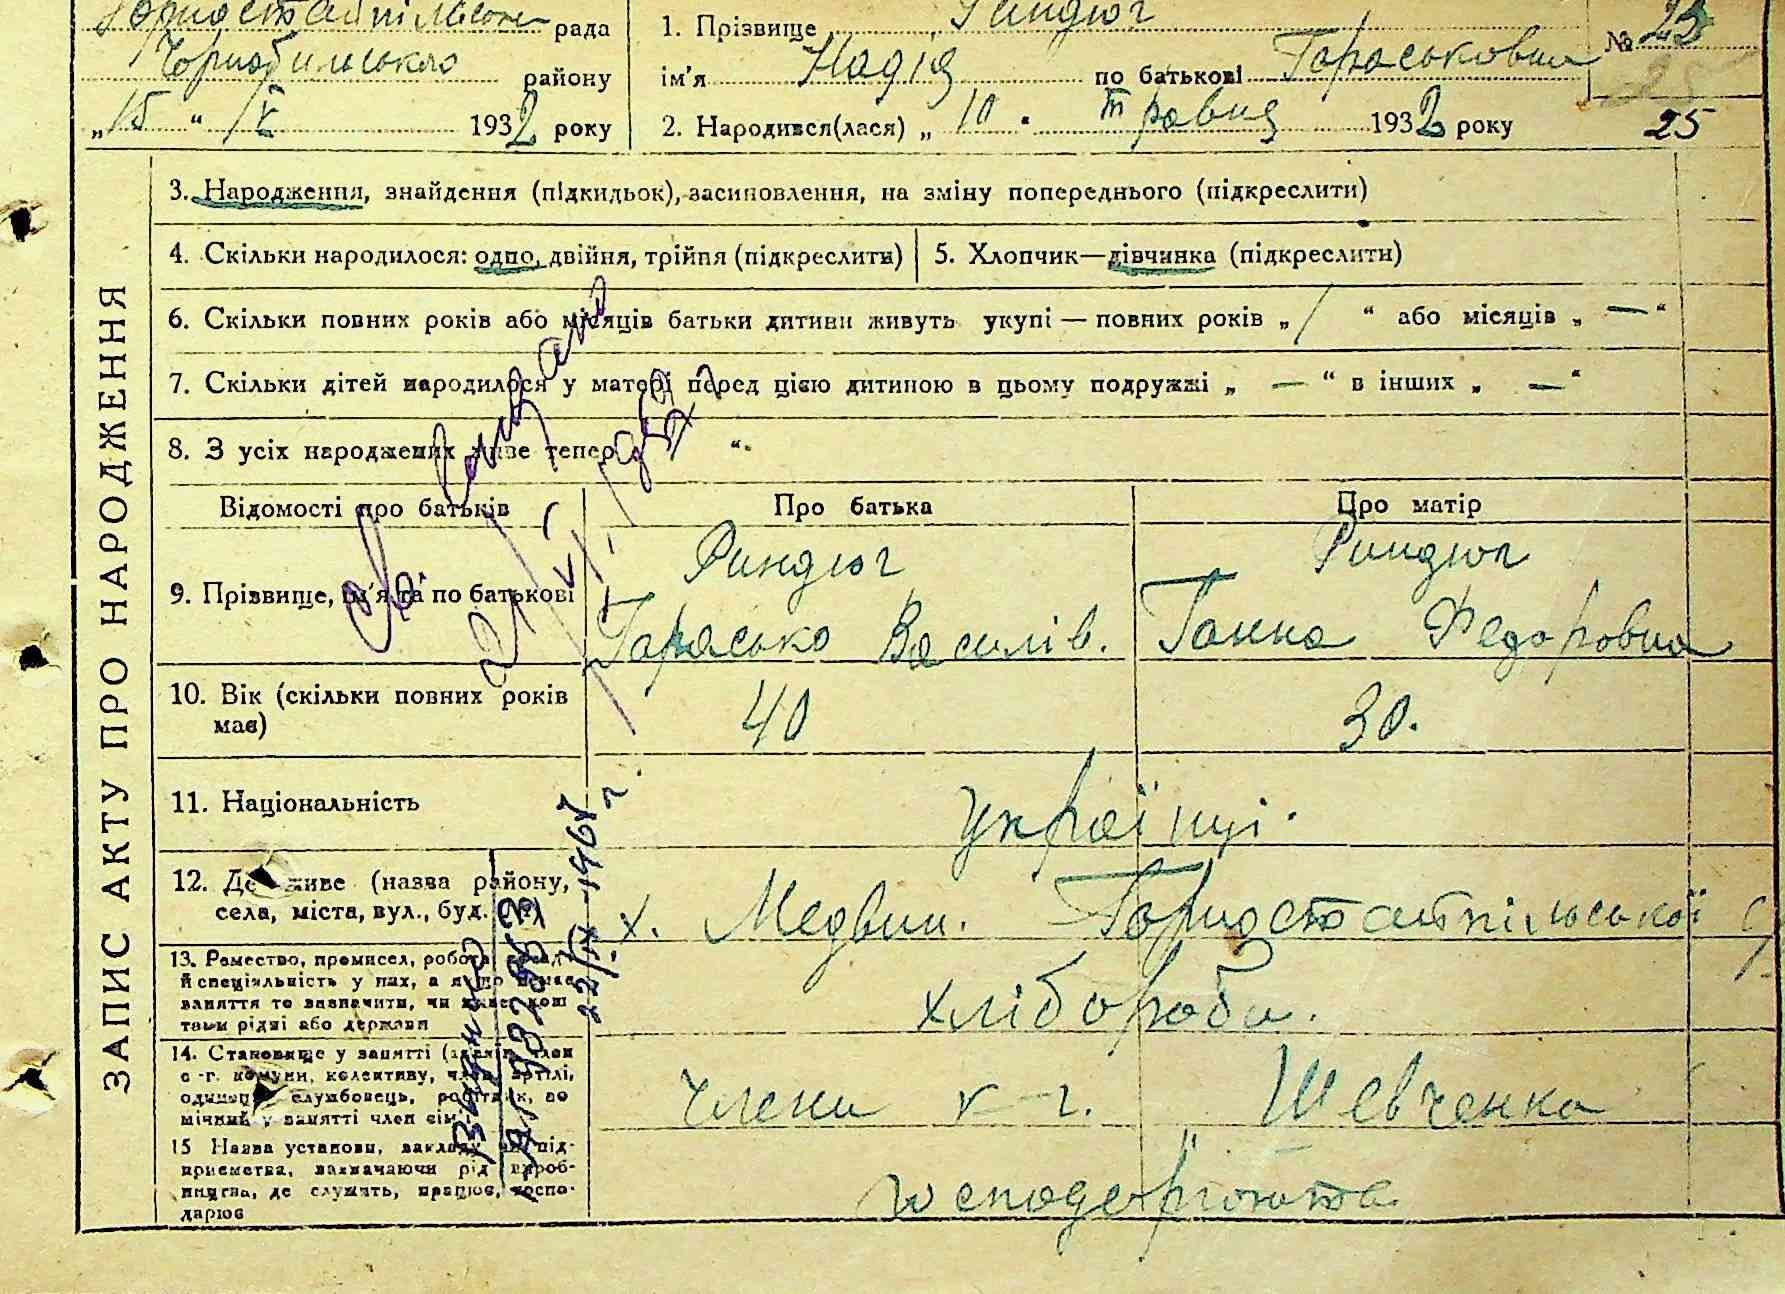 Горностайпільська рада
Чорнобильського району
„15“ V 1932 року
1. Прізвище Риндюг
ім'я Надія по батькові Тараськовна
2. Народився(лася) „10" травня 1932 року
№ 23
25
25
ЗАПИС АКТУ ПРО НАРОДЖЕННЯ
3. Народження, знайдення (підкидьок), засиновлення, на зміну попереднього (підкреслити)
4. Скільки народилося: одно, двійня, трійня (підкреслити)
5. Хлопчик—дівчинка (підкреслити)
6. Скільки повних років або місяців батьки дитини живуть укупі — повних років „ / “ або місяців „ — “
7. Скільки дітей народилося у матері перед цією дитиною в цьому подружжі „ — “ в інших „ — “
8. З усіх народжених живе тепер “.
Відомості про батьків
Про батька
Про матір
9. Прізвище, ім'я та по батькові
Риндюг
Тарасько Василів.
Риндюг
Ганна Федоровна
10. Вік (скільки повних років має)
40
30.
11. Національність
Українці.
12. Де живе (назва району,
села, міста, вул., буд. №)
х. Медвин. Горностайпільської
13. Ремество, промисел, робота, посада
й спеціяльність у них, а якщо немає
заняття то зазначити, чи живе кош
тами рідні або держави
хлібороби.
14. Становище у занятті (хазяїн, член
с.-г. комуни, колективу, член артілі,
одинцем, службовець, робітник, по
мічний у занятті член сім'ї)
члени к-г. Шевченка
15 Назва установи, закладу чи під-
приємства, зазначаючи рід вироб-
ництва, де служить, працює, госпо-
дарює
22/IX-1967 г.